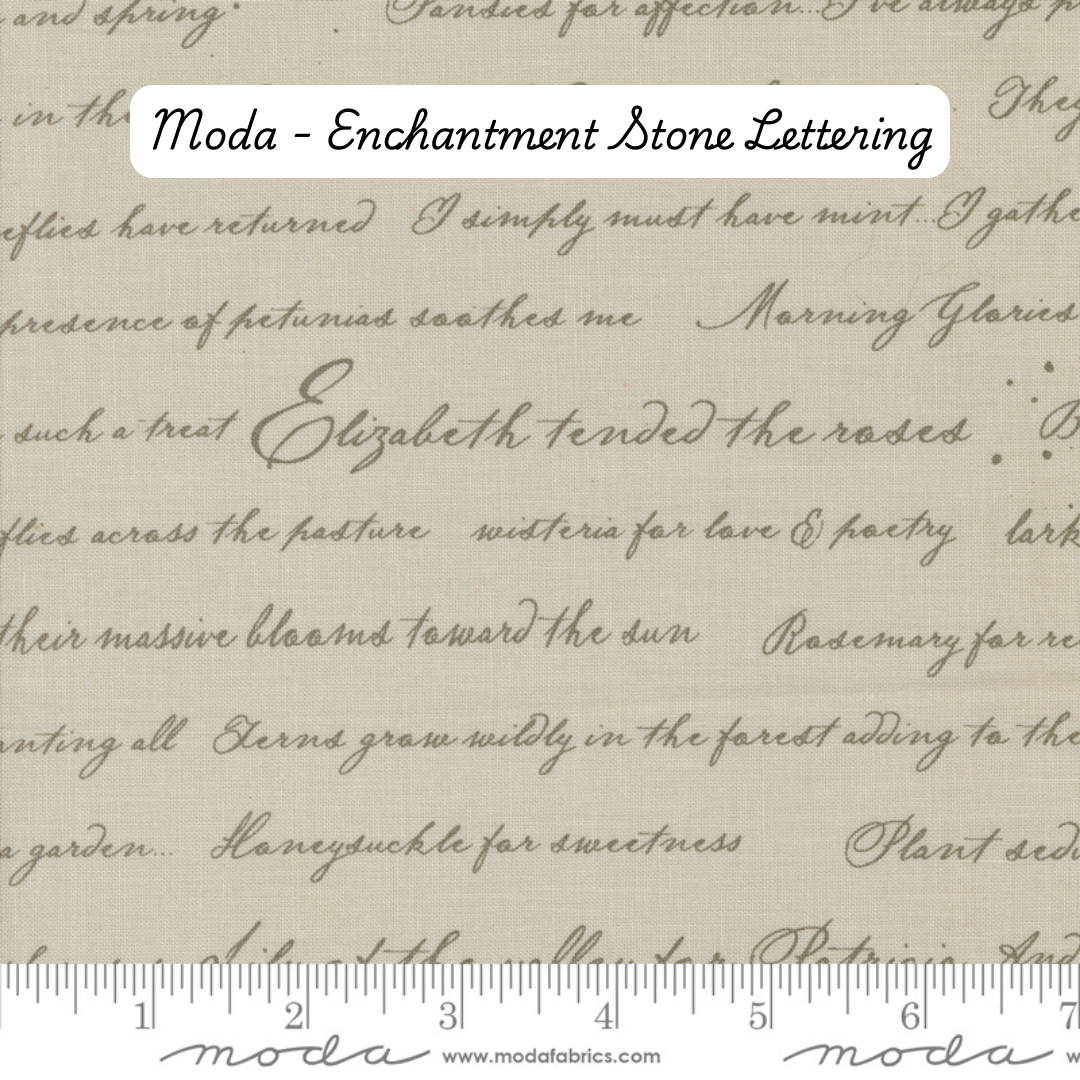 and spring
Pansies for affection...I've always
in the
They
Moda - Enchantment Stone Lettering
eflies have returned I simply must have mint...I gathe
presence of petunias soothes me Morning Glories
such a treat Elizabeth tended the roses B
flies across the pasture wisteria for love & poetry lark
their massive blooms toward the sun Rosemary for re
anting all Ferns grow wildly in the forest adding to the
a garden... Honeysuckle for sweetness Plant sedu
Lily of the valley for Patricia And
1 2 3 4 5 6 7
moda www.modafabrics.com moda w